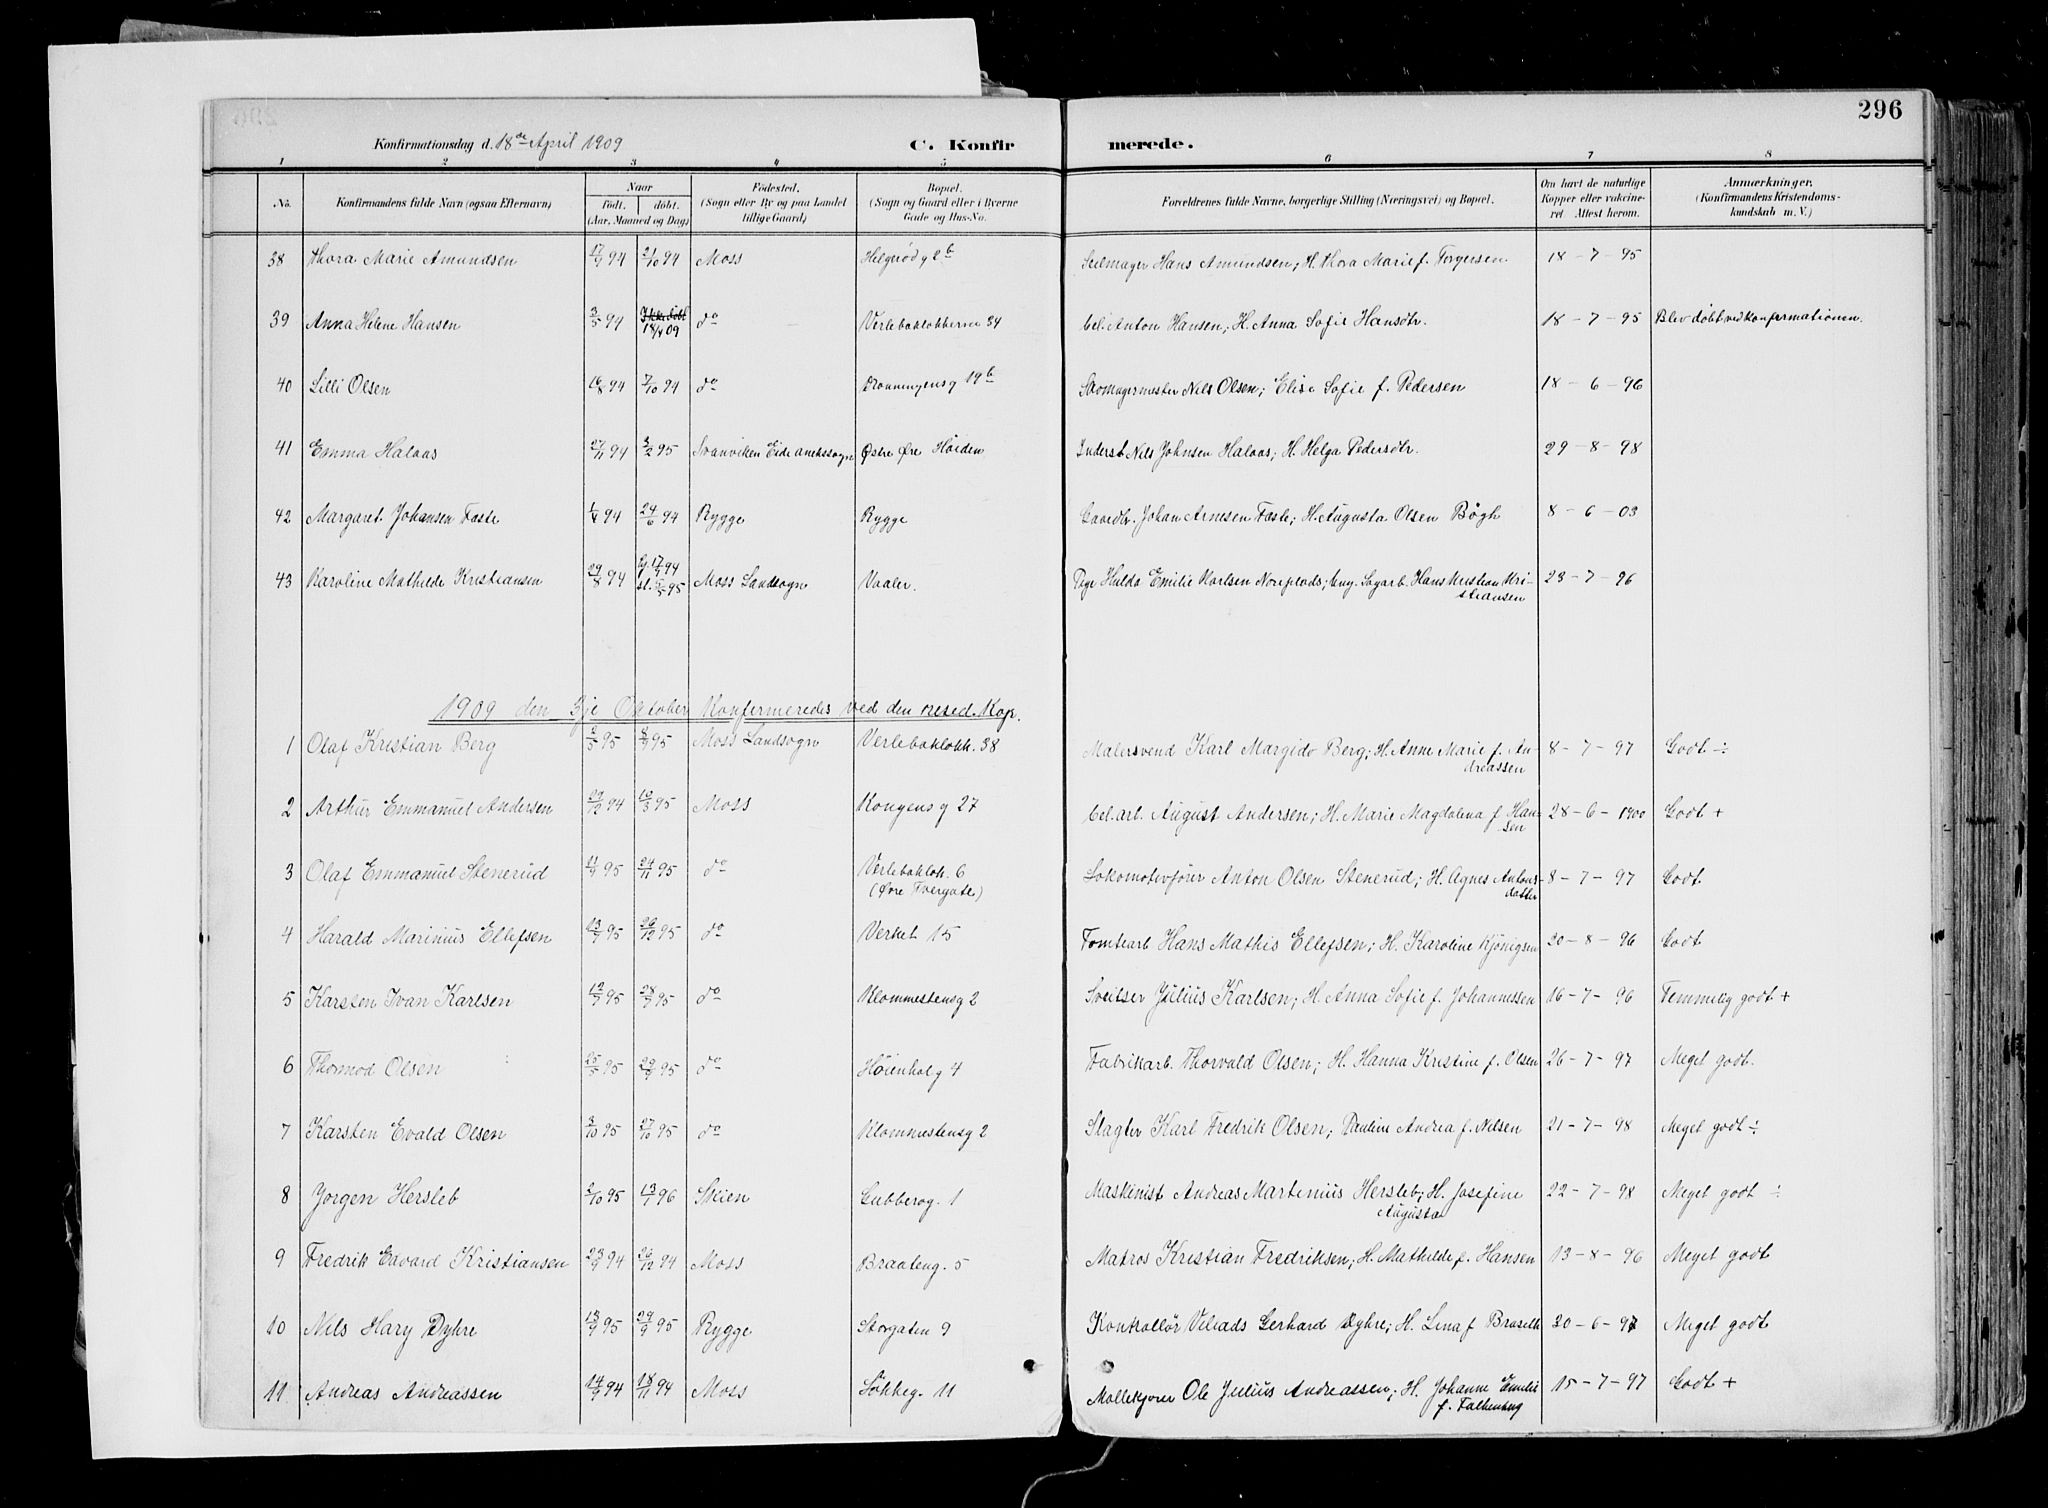 296
Konfirmationsdag d. 18de April 1909 C. Konfirmerede.
1 2 3 4 5 6 7 8
No. Konfirmandens fulde Navn (ogsaa Efternavn) Naar født. døbt. (Aar, Maaned og Dag) Fødested. (Sogn eller By og paa Landet tillige Gaard) Bopæl. (Sogn og Gaard eller i Byerne Gade og Hus-No. Forældrenes fulde Navne, borgerlige Stilling (Næringsvei) og Bopæl. Om havt de naturlige Kopper eller vakcineret Attest herom. Anmærkninger. (Konfirmandens Kristendomskundskab m. V.)
38 Thora Marie Amundsen 17/9 94 2/10 94 Moss Helgerødg 2b Seilmager Hans Amundsen; H. Thora Marie f. Torgersen 18-7-95
39 Anna Helene Hansen 3/5 94 Ikke døbt 18/4 09 do Verlebaklokkerne 34 Cel. Anton Hansen; H. Anna Sofie Hansdtr. 18-7-95 Blev døbt ved konfermationen.
40 Lilli Olsen 16/8 94 7/10 94 do Dronningensg 19b Skomagermester Nils Olsen; Elise Sofie f. Pedersen 18-6-96
41 Emma Halaas 27/11 94 3/2 95 Svanviken Eide anekssogn Østre Øre Høiden Inderst Nils Johnsen Halaas; H. Helga Pedersdtr. 29-8-98
42 Margaret Johansen Faste 1/4 94 24/6 94 Rygge Rygge Gaardbr. Johan Arntsen Faste; H. Augusta Olsen Bøgh 8-6-03
43 Karoline Mathilde Kristiansen 29/8 94 Moss Landsogn Vaaler. Pige Hulda Emilie Karlsen Noreplads; Ung. Sagarb. Hans Kristian Kristiansen 23-7-96
1909 den 3je Oktober Konfermeredes ved den resed. Kap.
1 Olaf Kristian Berg 2/5 95 8/9 95 Moss Landsogn Verlebaklokk. 38 Malersvend Karl Margido Berg; H. Anne Marie f. Andreassen 8-7-97 Godt ÷
2 Arthur Emmanuel Andersen 29/12 94 10/3 95 Moss Kongensg 27 Cel. arb. August Andersen; H. Marie Magdalena f. Hansen 28-6-1900 Godt +
3 Olaf Emmanuel Stenerud 11/9 95 24/11 95 do Verlebaklok. 6 (Øvre Tvergate) Lokomotivfører Anton Olsen Stenerud; H. Agnes Antonsdatter 8-7-97 Godt
4 Harald Marinius Ellefsen 13/9 95 26/12 95 do Verket 15 Tomtearb Hans Mathis Ellefsen; H. Karoline Kjønigsen 20-8-96 Godt
5 Karsten Ivan Karlsen 12/7 95 28/7 95 do Klommestensg 2 Sveitser Julius Karlsen; H. Anna Sofie f. Johannessen 16-7-96 Temmelig godt +
6 Thormod Olsen 25/5 95 29/9 95 do Høienholg 4 Fabrikarb. Thorvald Olsen; H. Hanna Kristine f. Olsen 26-7-97 Meget godt.
7 Karsten Evald Olsen 3/10 95 27/10 95 do Klommestensg 2 Slagter Karl Fredrik Olsen; Pauline Andrea f. Nilsen 21-7-98 Meget godt ÷
8 Jørgen Hersleb 2/10 95 13/1 96 Skien Gubberog. 1 Maskinist Andreas Martenius Hersleb; H. Josefine Augusta 22-7-98 Meget godt ÷
9 Fredrik Edvard Kristiansen 23/9 94 26/12 94 Moss Braateng. 5 Matros Kristian Fredriksen; H. Mathilde f. Hansen 13-8-96 Meget godt
10 Nils Hary Dyhre 13/9 95 29/9 95 Rygge Storgaten 9 Kontrollør Viliads Gerhard Dyhre; H. Lina f 30-6-97 Meget godt
11 Andreas Andreassen 14/9 94 18/11 94 Moss Løkkeg. 11 Møllekjører Ole Julius Andreassen; H. Johanne Emilie f. Falkenberg 15-7-97 Godt +